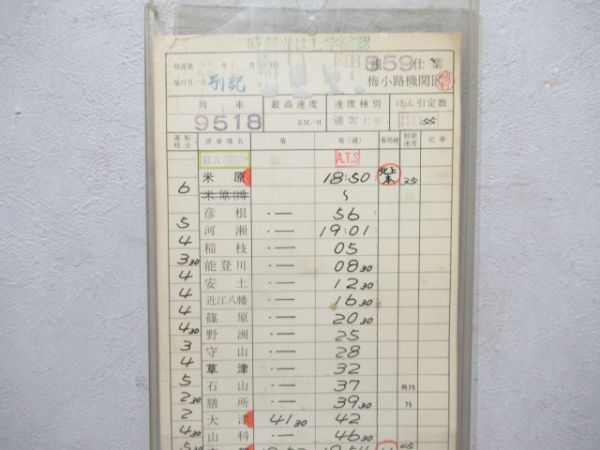 859 仕業
別記 梅小路機関区
列車 最高速度 速度種別 けん引定数
9518 KM/H 55
運転時分 停車場名 着 発(通) 着発線 制限速度 記事
A.T.S
米原 18:50 北上本 35
6 米原(操) 〜
彦根 ・― 56
5 河瀬 ・― 19:01
4 稲枝 ・― 05
3 30 能登川 ・― 08 30
4 安土 ・― 12 30
4 近江八幡 ・― 16 30
4 篠原 ・― 20 30
4 30 野洲 ・― 25
3 守山 ・― 28
4 草津 ・― 32
5 石山 ・― 37 外75
2 30 膳所 ・― 39 30 75
2 大津 41 30 42
山科 ・― 46 30